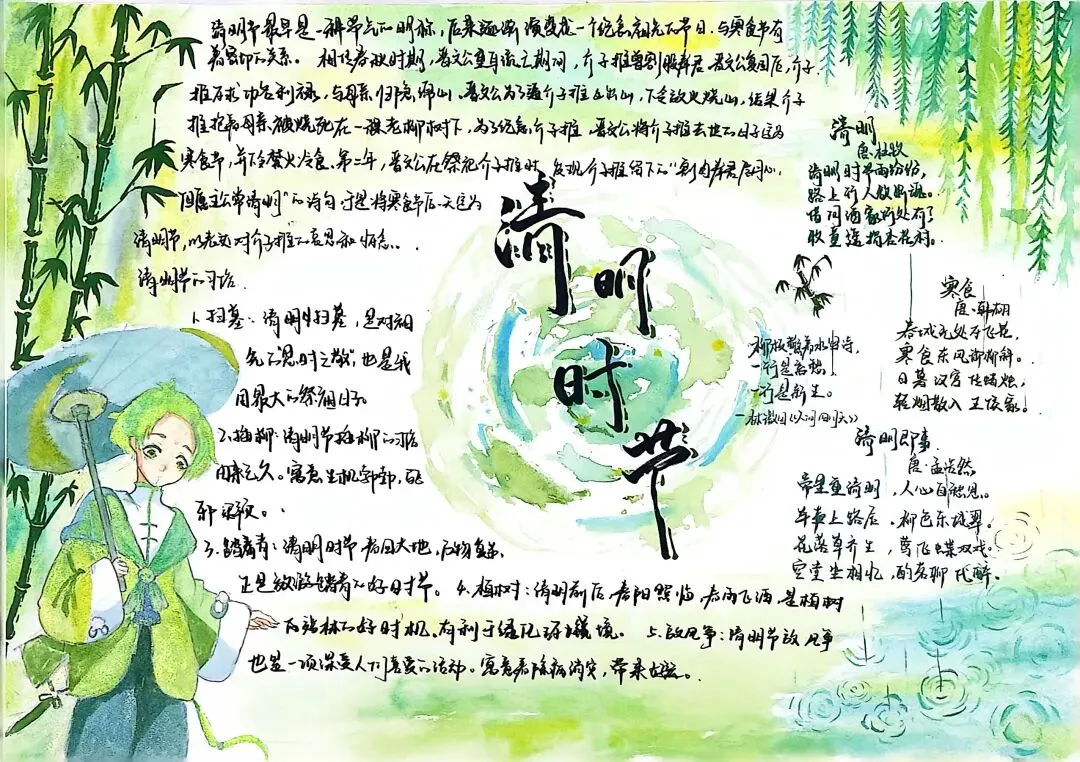 清明节最早是一种节气的明称，后来逐渐演变成一个纪念祖先的节日，与寒食节有
着密切的关系。相传春秋时期，晋文公重耳流亡期间，介子推曾割股奉君，晋文公复国后，介子
推不求功名利禄，与母亲归隐绵山，晋文公为了逼介子推出山，下令放火烧山，结果介子
推抱着母亲被烧死在一棵老柳树下，为了纪念介子推，晋文公将介子推去世的日子定为
寒食节，并下令禁火冷食。第二年，晋文公在祭祀介子推时，发现介子推留下的"割肉奉君尽丹心，
但愿主公常清明"的诗句于是将寒食节后一天定为
清明节，以表达对介子推的哀思和怀念。
清明节的习俗
1、扫墓：清明扫墓，是对祖
先的"思时之敬"，也是我
国最大的祭祖日子。
2、插柳：清明节插柳的习俗
由来已久。寓意生机勃勃，
3、踏青：清明时节，春回大地，万物
正是放游踏青的好时节。4、植树：清明前后，春阳照临，春雨飞洒，是植树
造林的好时机。有利于绿化环境。5、放风筝：清明节放风筝
也是一项深受人们喜爱的活动。寓意着除病消灾，带来好运。
清明时节
清明
唐·杜牧
清明时节雨纷纷，
路上行人欲断魂。
借问酒家何处有？
牧童遥指杏花村。
寒食
唐·韩翃
春城无处不飞花，
寒食东风御柳斜。
日暮汉宫传蜡烛，
轻烟散入五侯家。
一行是
一行是新生。
——林徽因《人间四月天》
清明即事
唐·孟浩然
帝里重清明，人心自愁思。
车声上路合，柳色东城翠。
花落草齐生，莺飞蝶双戏。
空堂坐相忆，酌茗聊代醉。